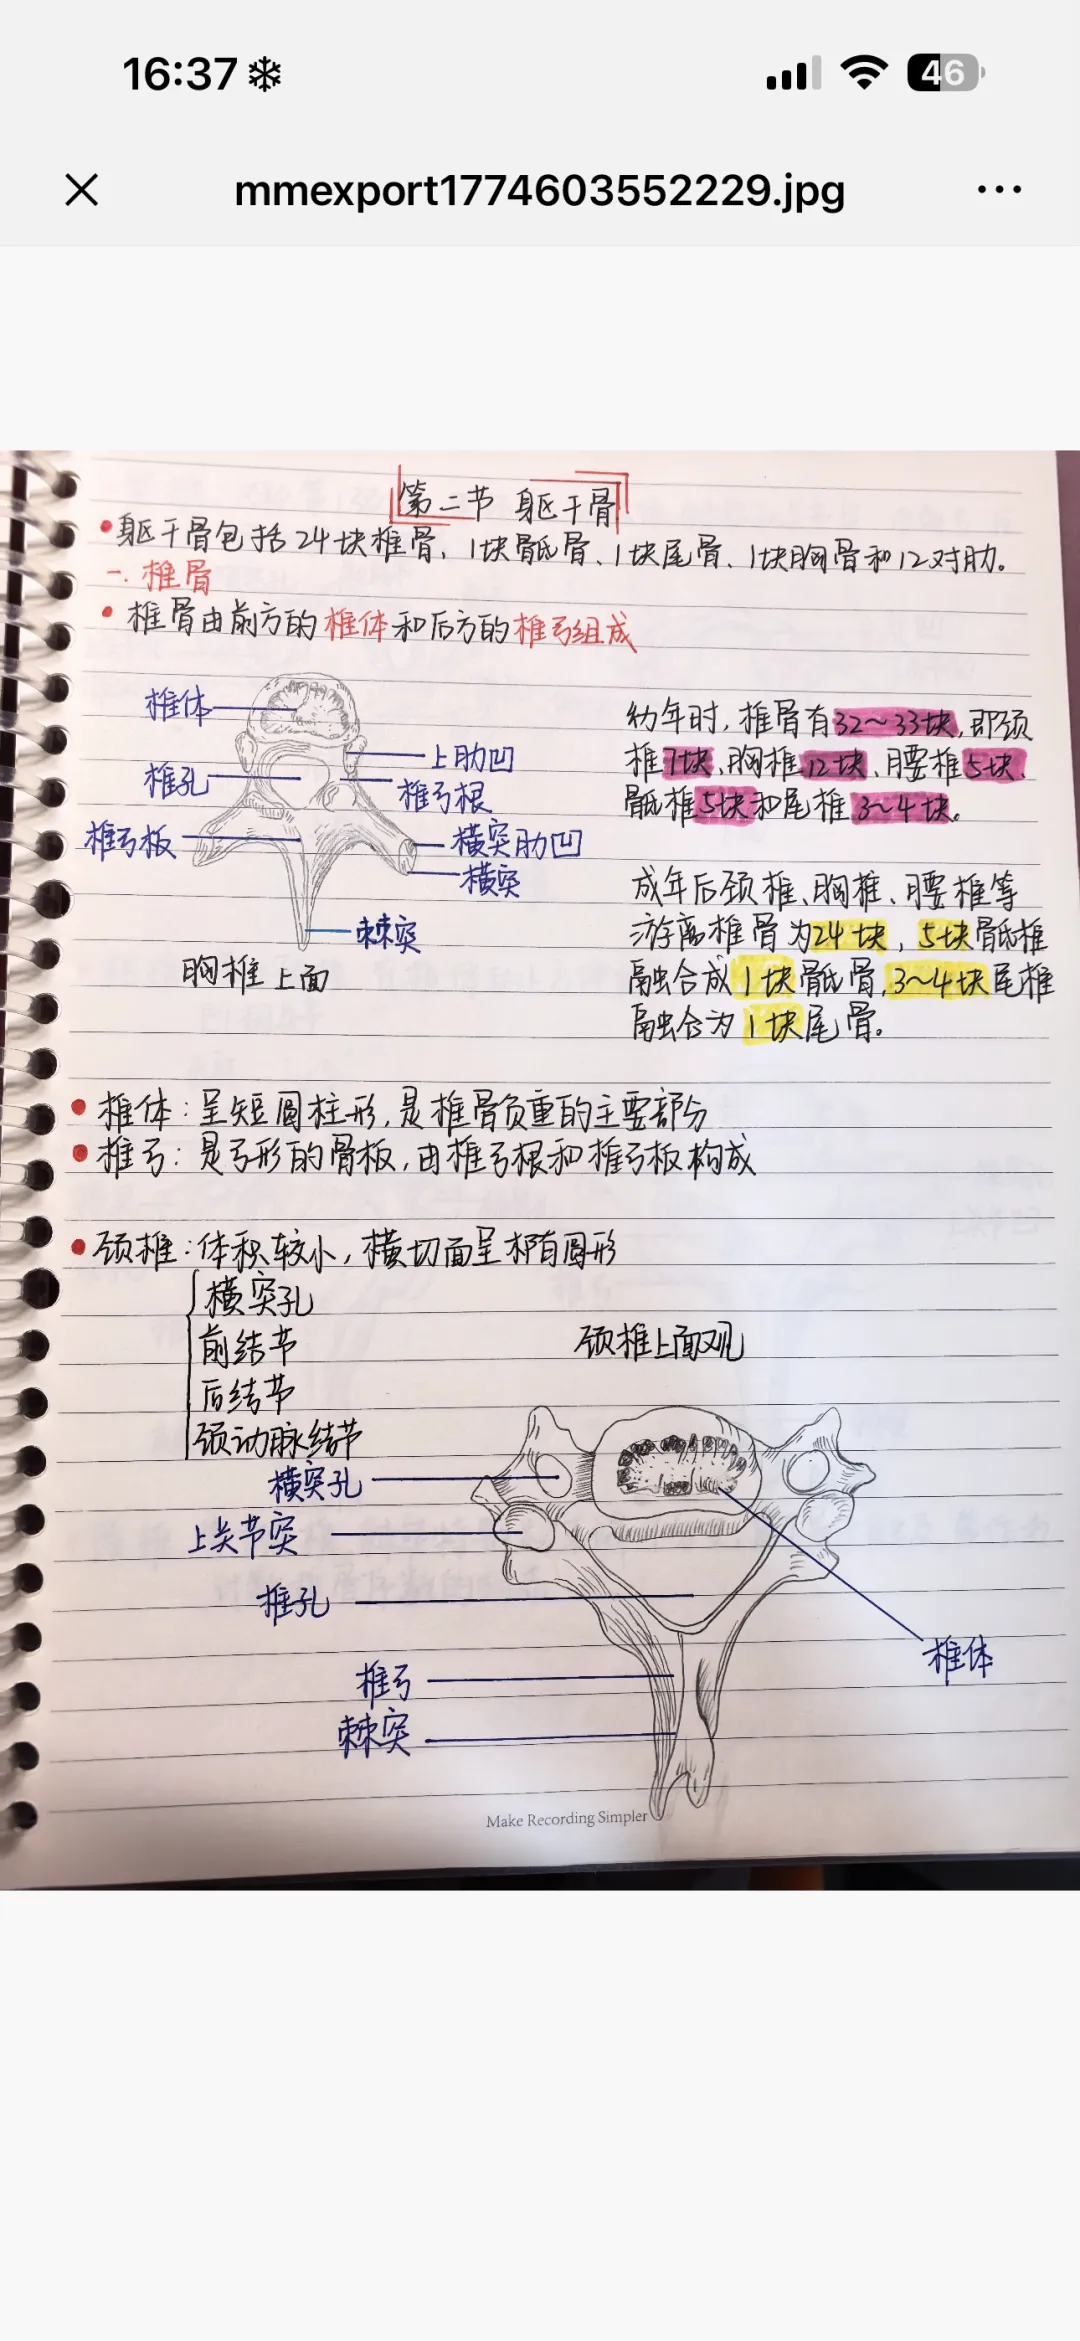 16:37
46
mmexport1774603552229.jpg
第二节 躯干骨
•躯干骨包括24块椎骨、1块骶骨、1块尾骨、1块胸骨和12对肋。
一. 椎骨
• 椎骨由前方的椎体和后方的椎弓组成
椎体
上肋凹
椎孔
椎弓根
椎弓板
横突肋凹
横突
棘突
胸椎上面
幼年时,椎骨有32~33块,即颈
椎7块、胸椎12块、腰椎5块、
骶椎5块和尾椎3~4块。
成年后颈椎、胸椎、腰椎等
游离椎骨为24块,5块骶椎
融合成1块骶骨,3~4块尾椎
融合为1块尾骨。
• 椎体:呈短圆柱形,是椎骨负重的主要部分
• 椎弓:是弓形的骨板,由椎弓根和椎弓板构成
• 颈椎:体积较小,横切面呈椭圆形
横突孔
前结节
后结节
颈动脉结节
颈椎上面观
横突孔
上关节突
椎孔
椎体
椎弓
棘突
Make Recording Simpler